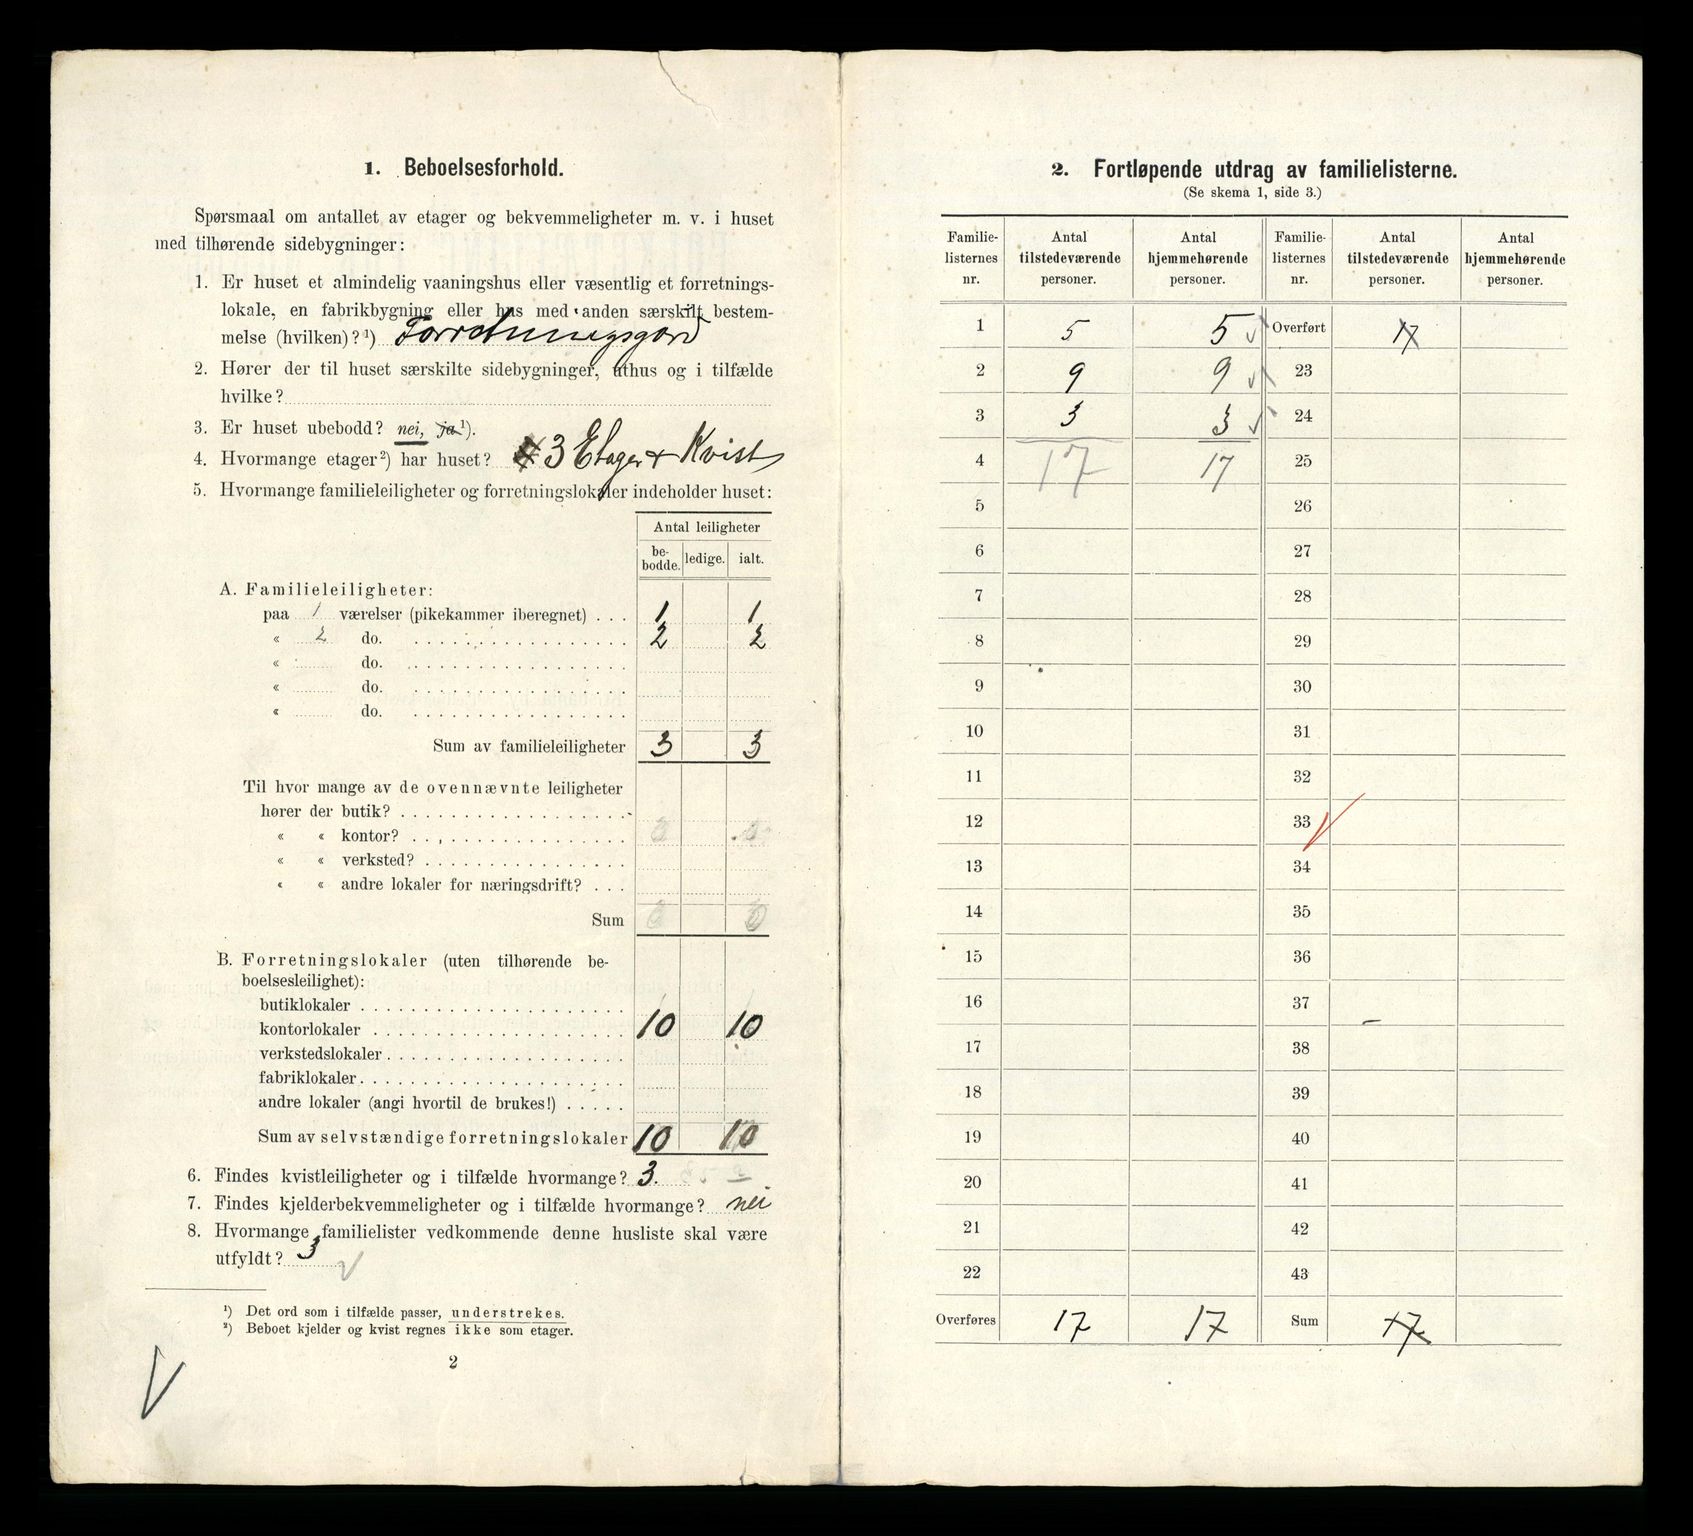 1. Beboelsesforhold.
Spørsmaal om antallet av etager og bekvemmeligheter m. v. i huset
med tilhørende sidebygninger:
1. Er huset et almindelig vaaningshus eller væsentlig et forretnings-
lokale, en fabrikbygning eller hus med anden særskilt bestem-
melse (hvilken)?¹) Forretningsgård
2. Hører der til huset særskilte sidebygninger, uthus og i tilfælde
hvilke?
3. Er huset ubebodd? nei, ja¹).
4. Hvormange etager²) har huset? 3 Etager + Kvist
5. Hvormange familieleiligheter og forretningslokaler indeholder huset:
Antal leiligheter
be-bodde. ledige. ialt.
A. Familieleiligheter:
paa 1 værelser (pikekammer iberegnet) . . . 1 1
« 2 do. 2 2
« do.
« do.
« do.
Sum av familieleiligheter 3 3
Til hvor mange av de ovennævnte leiligheter
hører der butik?
« « kontor?
« « verksted?
« « andre lokaler for næringsdrift? . . .
Sum
B. Forretningslokaler (uten tilhørende be-
boelsesleilighet):
butiklokaler
kontorlokaler 10 10
verkstedslokaler
fabriklokaler
andre lokaler (angi hvortil de brukes!)
Sum av selvstændige forretningslokaler 10 10
6. Findes kvistleiligheter og i tilfælde hvormange? 3.
7. Findes kjelderbekvemmeligheter og i tilfælde hvormange? nei
8. Hvormange familielister vedkommende denne husliste skal være
utfyldt? 3
¹) Det ord som i tilfælde passer, understrekes.
²) Beboet kjelder og kvist regnes ikke som etager.
2
2. Fortløpende utdrag av familielisterne.
(Se skema 1, side 3.)
Familie- Antal Antal Familie- Antal Antal
listernes tilstedeværende hjemmehørende listernes tilstedeværende hjemmehørende
nr. personer. personer. nr. personer. personer.
1 5 5 Overført 17
2 9 9 23
3 3 3 24
4 17 17 25
5 26
6 27
7 28
8 29
9 30
10 31
11 32
12 33
13 34
14 35
15 36
16 37
17 38
18 39
19 40
20 41
21 42
22 43
Overføres 17 17 Sum 17